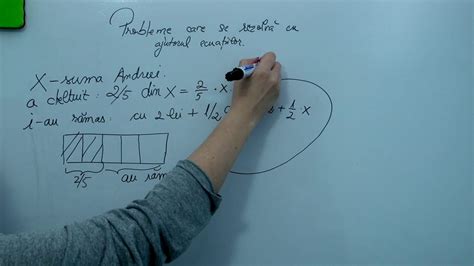 Probleme care se rezolvă cu
ajutorul ecuațiilor.
X - suma Andrei.
a cheltuit: 2/5 din X = 2/5 · x
i-au rămas: cu 2 lei + 1/2 + 1/2 x
2/5 au răm